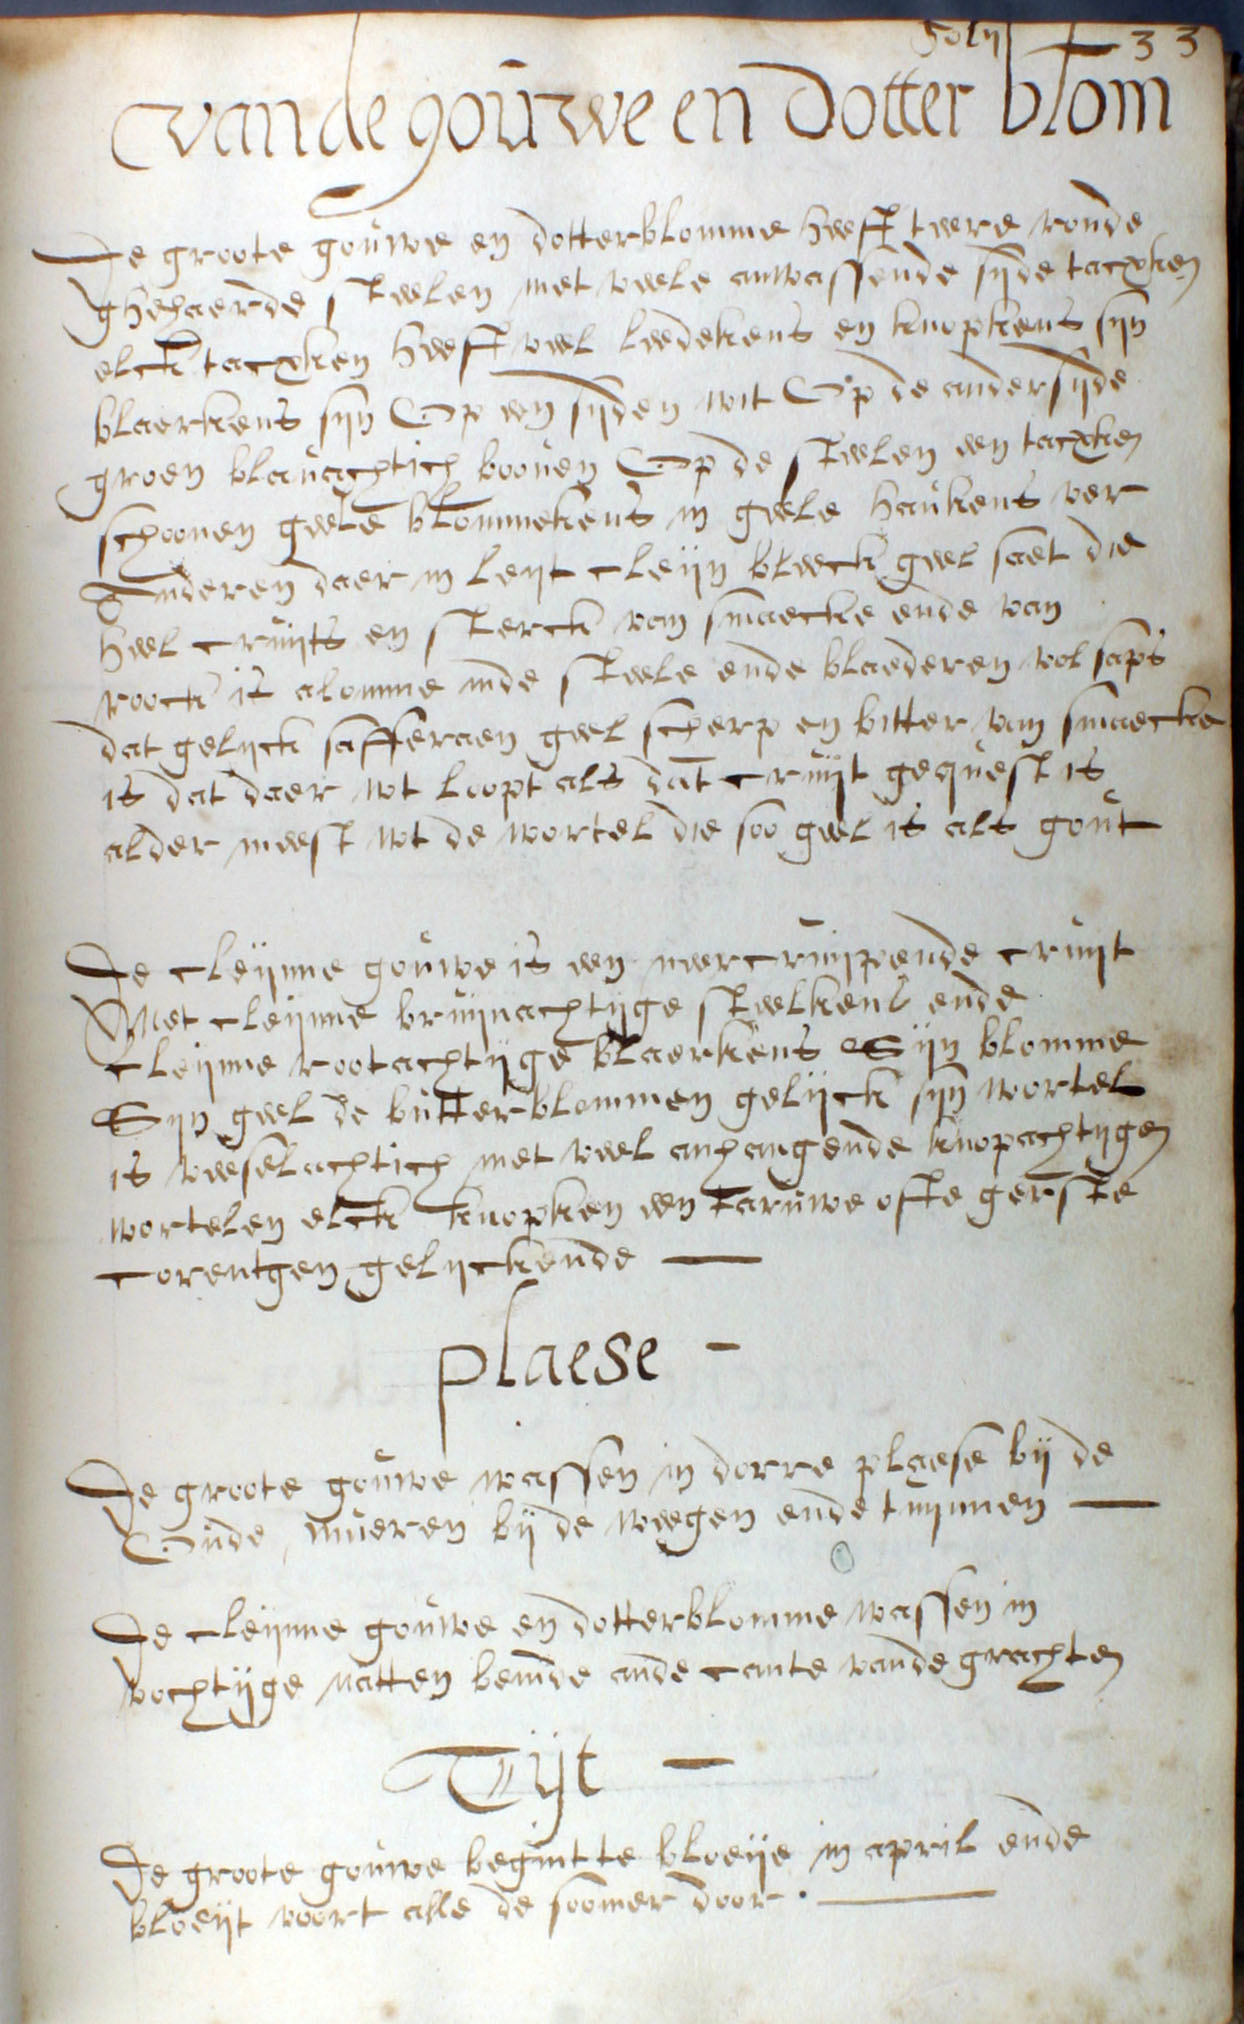 Folij 33
vande gouwe en dotter blom
De groote gouwe en dotterblomme heeft teere ronde
ghehaerde steelen met veele anwassende sijde tacxken
elck tacxken heeft veel leedekens en knopkens sijn
blaerkens sijn Op een sijden wit Op de ander sijde
groen blauachtich booven Op de steelen een tacxken
schoonen geele blommekens in geele haukens ver
anderen daer in leijt cleijn bleeck geel saet die
heel cruijts en sterck van smaecke ende van
roock is alomme inde steele ende blaederen vol saps
dat gelijck safferaen geel scherp en bitter van smaecke
is dat daer wt loopt als dat cruijt gequest is
alder meest wt de wortel die soo geel is als gout
De cleijnne gouwe is een neercruijpende cruijt
Met cleijnne bruijnachtijge steelkens ende
cleijnne rootachtijge blaerkens Sijn blomme
Sijn geel de butterblommen gelijck sijn wortel
is veeselachtich met veel anhangende knopachtijgen
wortelen elck knopken een taruwe ofte gerste
corentgen gelijckende
plaese
De groote gouwe wassen in dorre plaese bij de
Oude mueren bij de weegen ende tuijnnen
De cleijnne gouwe en dotterblomme wassen in
vochtijge natten bemde ande cante vande grachten
Tijt
De groote gouwe begint te bloeije in april ende
bloeijt voort alle de soomer door.